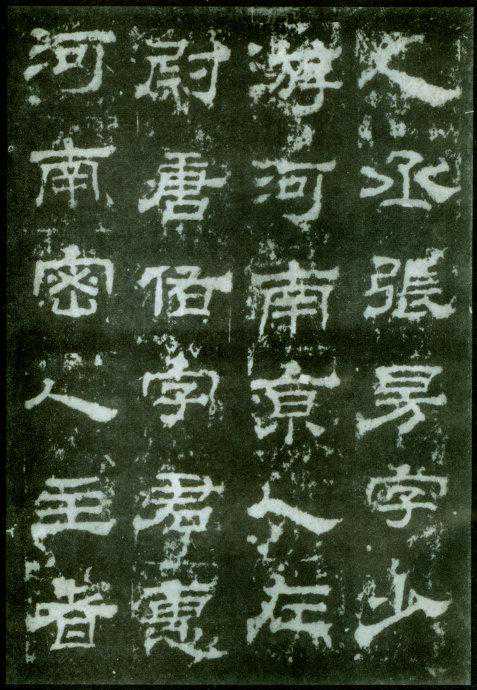 人丞張昉字少
游河南京人左
尉唐佑字君惠
河南密人主者